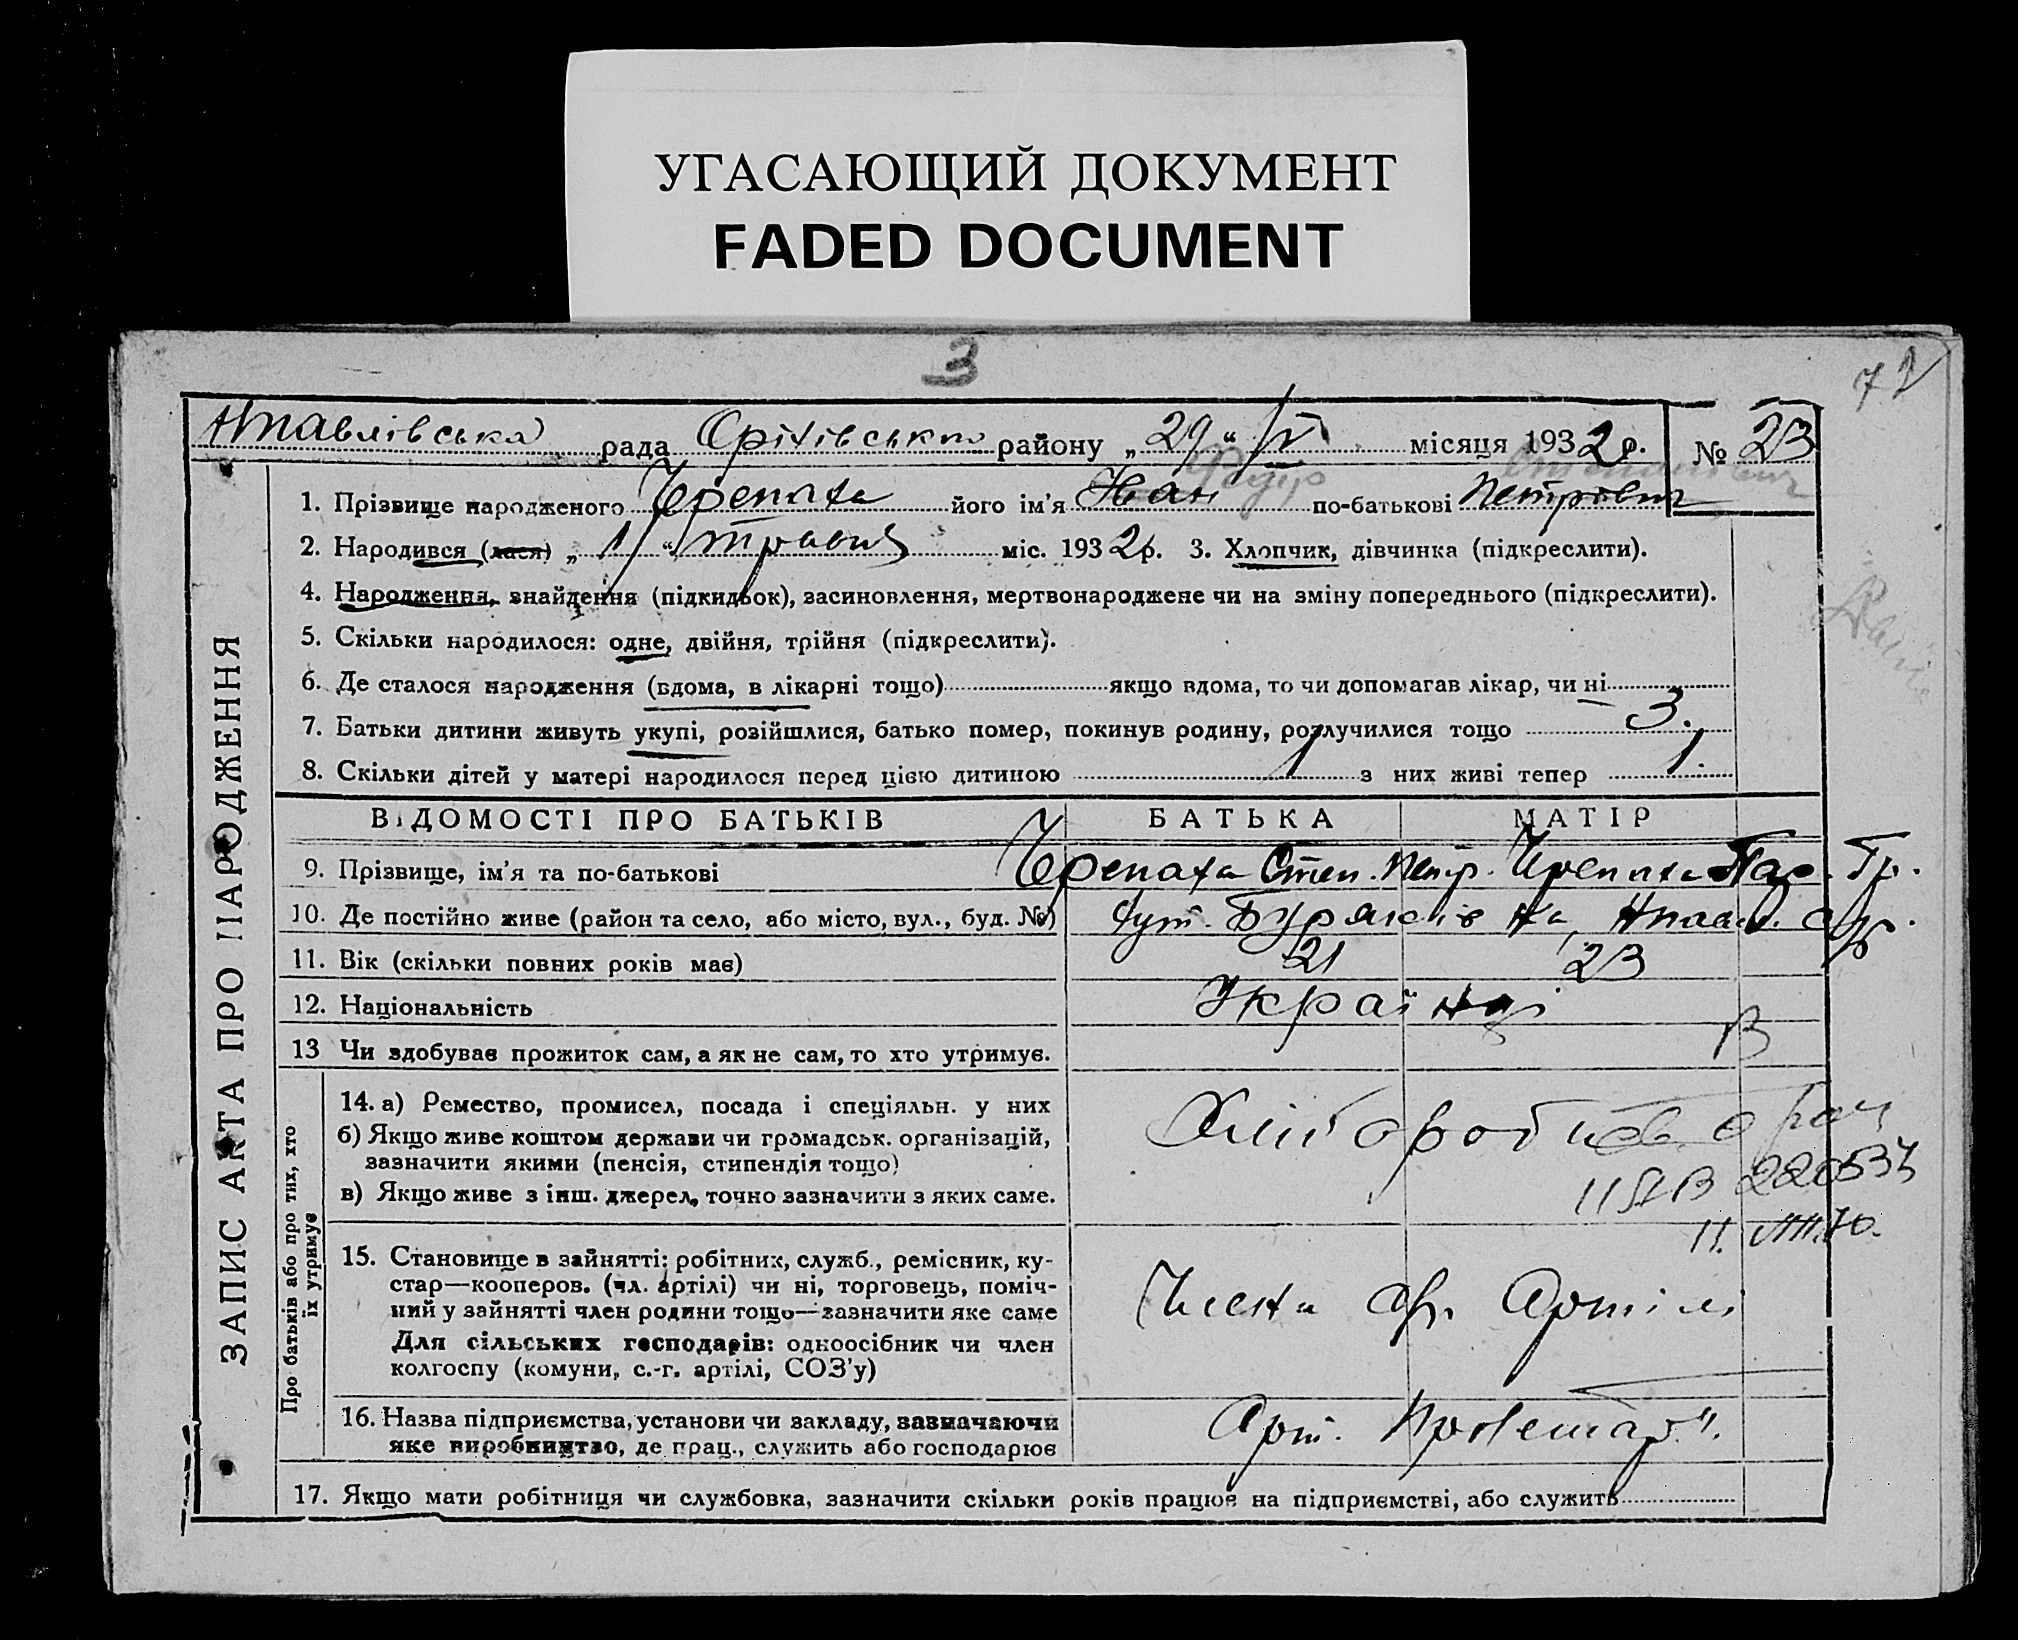 УГАСАЮЩИЙ ДОКУМЕНТ
FADED DOCUMENT
3
72
Нпавлівська рада Оріхівського району „29“ IV місяця 1932 р. № 23
1. Прізвище народженого Черепаха його ім'я Іван по-батькові Петрович
2. Народився (лася) „1“ травня міс. 1932 р. 3. Хлопчик, дівчинка (підкреслити).
4. Народження, знайдення (підкидьок), засиновлення, мертвонароджене чи на зміну попереднього (підкреслити).
5. Скільки народилося: одне, двійня, трійня (підкреслити).
6. Де сталося народження (вдома, в лікарні тощо) якщо вдома, то чи допомагав лікар, чи ні
7. Батьки дитини живуть укупі, розійшлися, батько помер, покинув родину, розлучилися тощо 3.
8. Скільки дітей у матері народилося перед цією дитиною 1 з них живі тепер 1.
ВІДОМОСТІ ПРО БАТЬКІВ БАТЬКА МАТІР
9. Прізвище, ім'я та по-батькові Черепаха Степ. Петр. Черепаха Пар. Гр.
10. Де постійно живе (район та село, або місто, вул., буд. №) хут. Буряківка, Нпавл. с/р.
11. Вік (скільки повних років має) 21 23
12. Національність Українці
13 Чи здобуває прожиток сам, а як не сам, то хто утримує. В
14. а) Ремество, промисел, посада і спеціяльн. у них Хлібороб
б) Якщо живе коштом держави чи громадськ. організацій,
зазначити якими (пенсія, стипендія тощо)
в) Якщо живе з інш. джерел, точно зазначити з яких саме.
15. Становище в зайнятті: робітник, служб., ремісник, ку-
стар—кооперов. (чл. артілі) чи ні, торговець, поміч-
ний у зайнятті член родини тощо—зазначити яке саме
Для сільських господарів: одноосібник чи член
колгоспу (комуни, с.-г. артілі, СОЗ'у)
Члени с/г. Артілі
16. Назва підприємства, установи чи закладу, зазначаючи
яке виробництво, де прац., служить або господарює
Арт. Пролетар".
17. Якщо мати робітниця чи службовка, зазначити скільки років працює на підприємстві, або служить
ЗАПИС АКТА ПРО НАРОДЖЕННЯ
Про батьків або про тих, хто
їх утримує